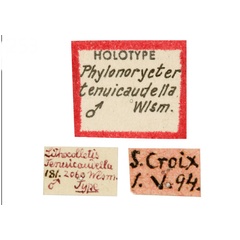 HOLOTYPE
Phylonorycter
tenuicaudella
♂ Wlsm.
Lithocolletis
Tenuicaudella
181. 2060 Wlsm.
♂ Type
S. Croix
1. V. 94.